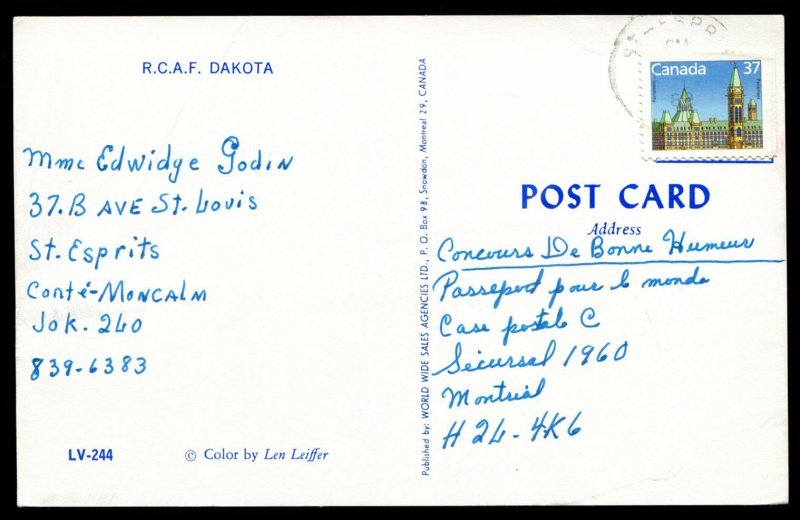 R.C.A.F. DAKOTA
Mme Edwidge Godin
37.B AVE St. Louis
St. Esprits
Conté-MONCALM
Jok. 2L0
839-6383
LV-244
© Color by Len Leiffer
Published by: WORLD WIDE SALES AGENCIES LTD., P. O. Box 98, Snowdon, Montreal 29, CANADA
Canada 37
POST CARD
Address
Concours De Bonne Humeur
Passeport pour le monde
Case postale C
Sécursal 1960
Montréal
H2L-4K6